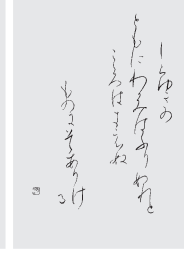 しらゆきの
ともにわかみはふりぬれと
こゝろはきえぬ
ものにそありけ
る